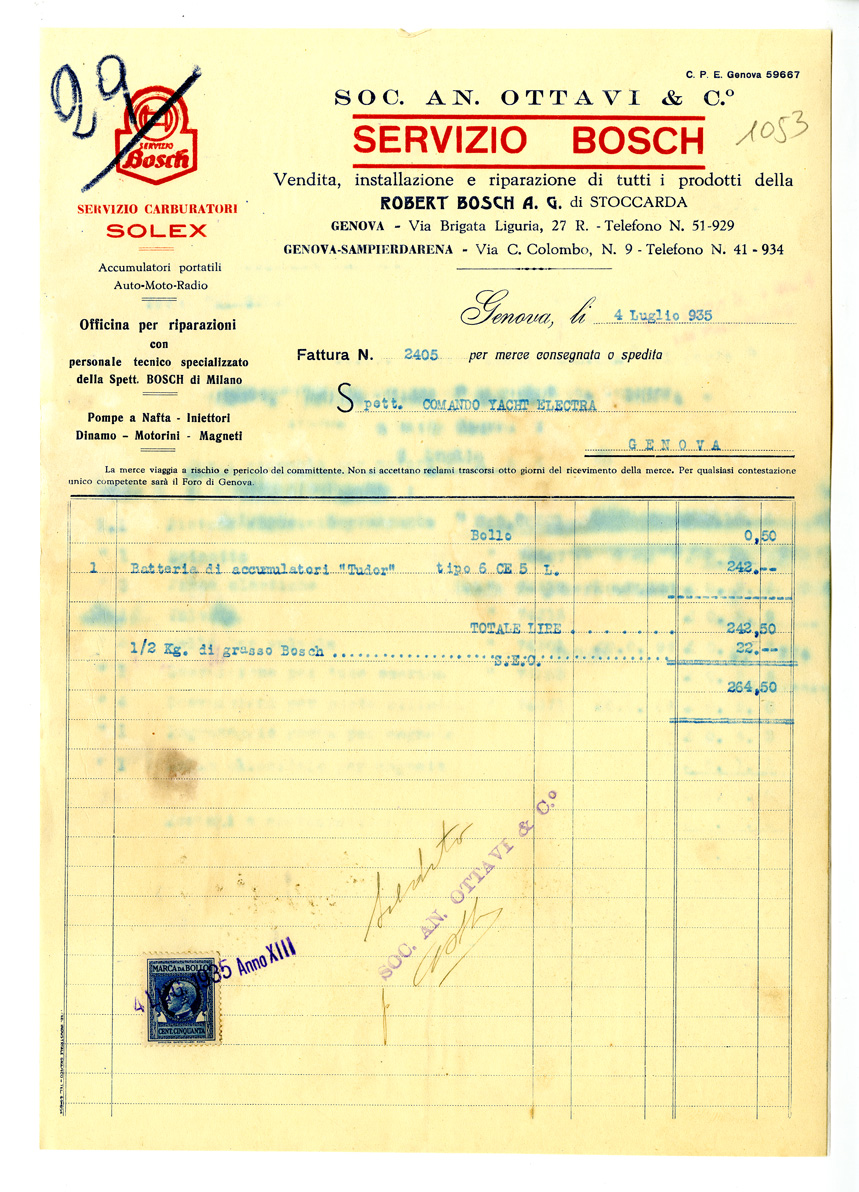 29
C. P. E. Genova 59667
SOC. AN. OTTAVI & C.º
SERVIZIO BOSCH
1053
Vendita, installazione e riparazione di tutti i prodotti della
ROBERT BOSCH A. G. di STOCCARDA
GENOVA - Via Brigata Liguria, 27 R. - Telefono N. 51-929
GENOVA-SAMPIERDARENA - Via C. Colombo, N. 9 - Telefono N. 41-934
SERVIZIO
Bosch
SERVIZIO CARBURATORI
SOLEX
Accumulatori portatili
Auto-Moto-Radio
Officina per riparazioni
con
personale tecnico specializzato
della Spett. BOSCH di Milano
Pompe a Nafta - Iniettori
Dinamo - Motorini - Magneti
Genova, li 4 Luglio 935
Fattura N. 2405 per merce consegnata o spedita
Spett. COMANDO YACHT ELECTRA
GENOVA
La merce viaggia a rischio e pericolo del committente. Non si accettano reclami trascorsi otto giorni del ricevimento della merce. Per qualsiasi contestazione
unico competente sarà il Foro di Genova.
Bollo 0,50
1 Batteria di accumulatori "Tudor" tipo 6 CE 5 L. 242.--
TOTALE LIRE . . . . . . . 242,50
1/2 Kg. di grasso Bosch .......................................... 22.--
S.E.O.
264,50
SOC. AN. OTTAVI & C.º
MARCA DA BOLLO
4 LUG. 1935 Anno XIII
CENT. CINQUANTA